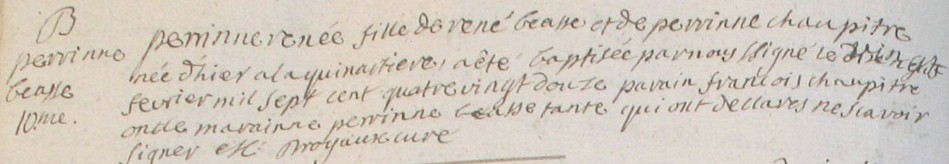 B
perrinne
beasse
10.me.
perrinne renée fille de rené beasse et de perrinne chaupitre
née d'hier a la quinartiere, a êté baptisée par nous signé le
fevrier mil sept cent quatre vingt douze parain francois chaupitre
oncle marainne perrinne beasse tante qui ont declares ne scavoir
signer etc. Broyeux curé